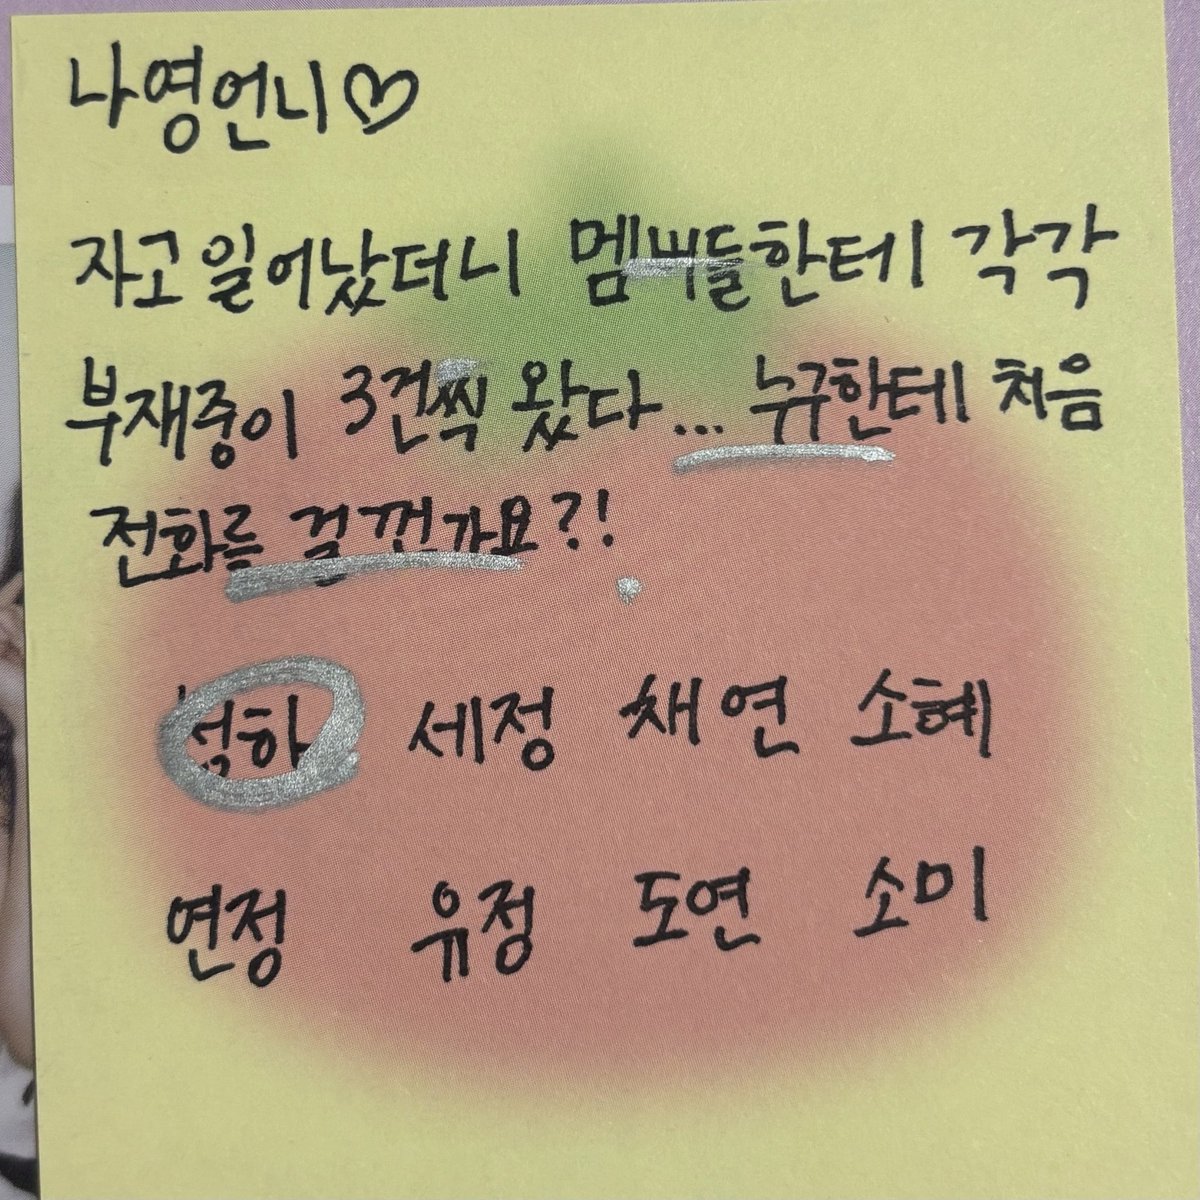 나영언니♡
자고 일어났더니 멤버들한테 각각
부재중이 3건씩 왔다... 누구한테 처음
전화를 걸껀가요?!
청하 세정 채연 소혜
연정 유정 도연 소미